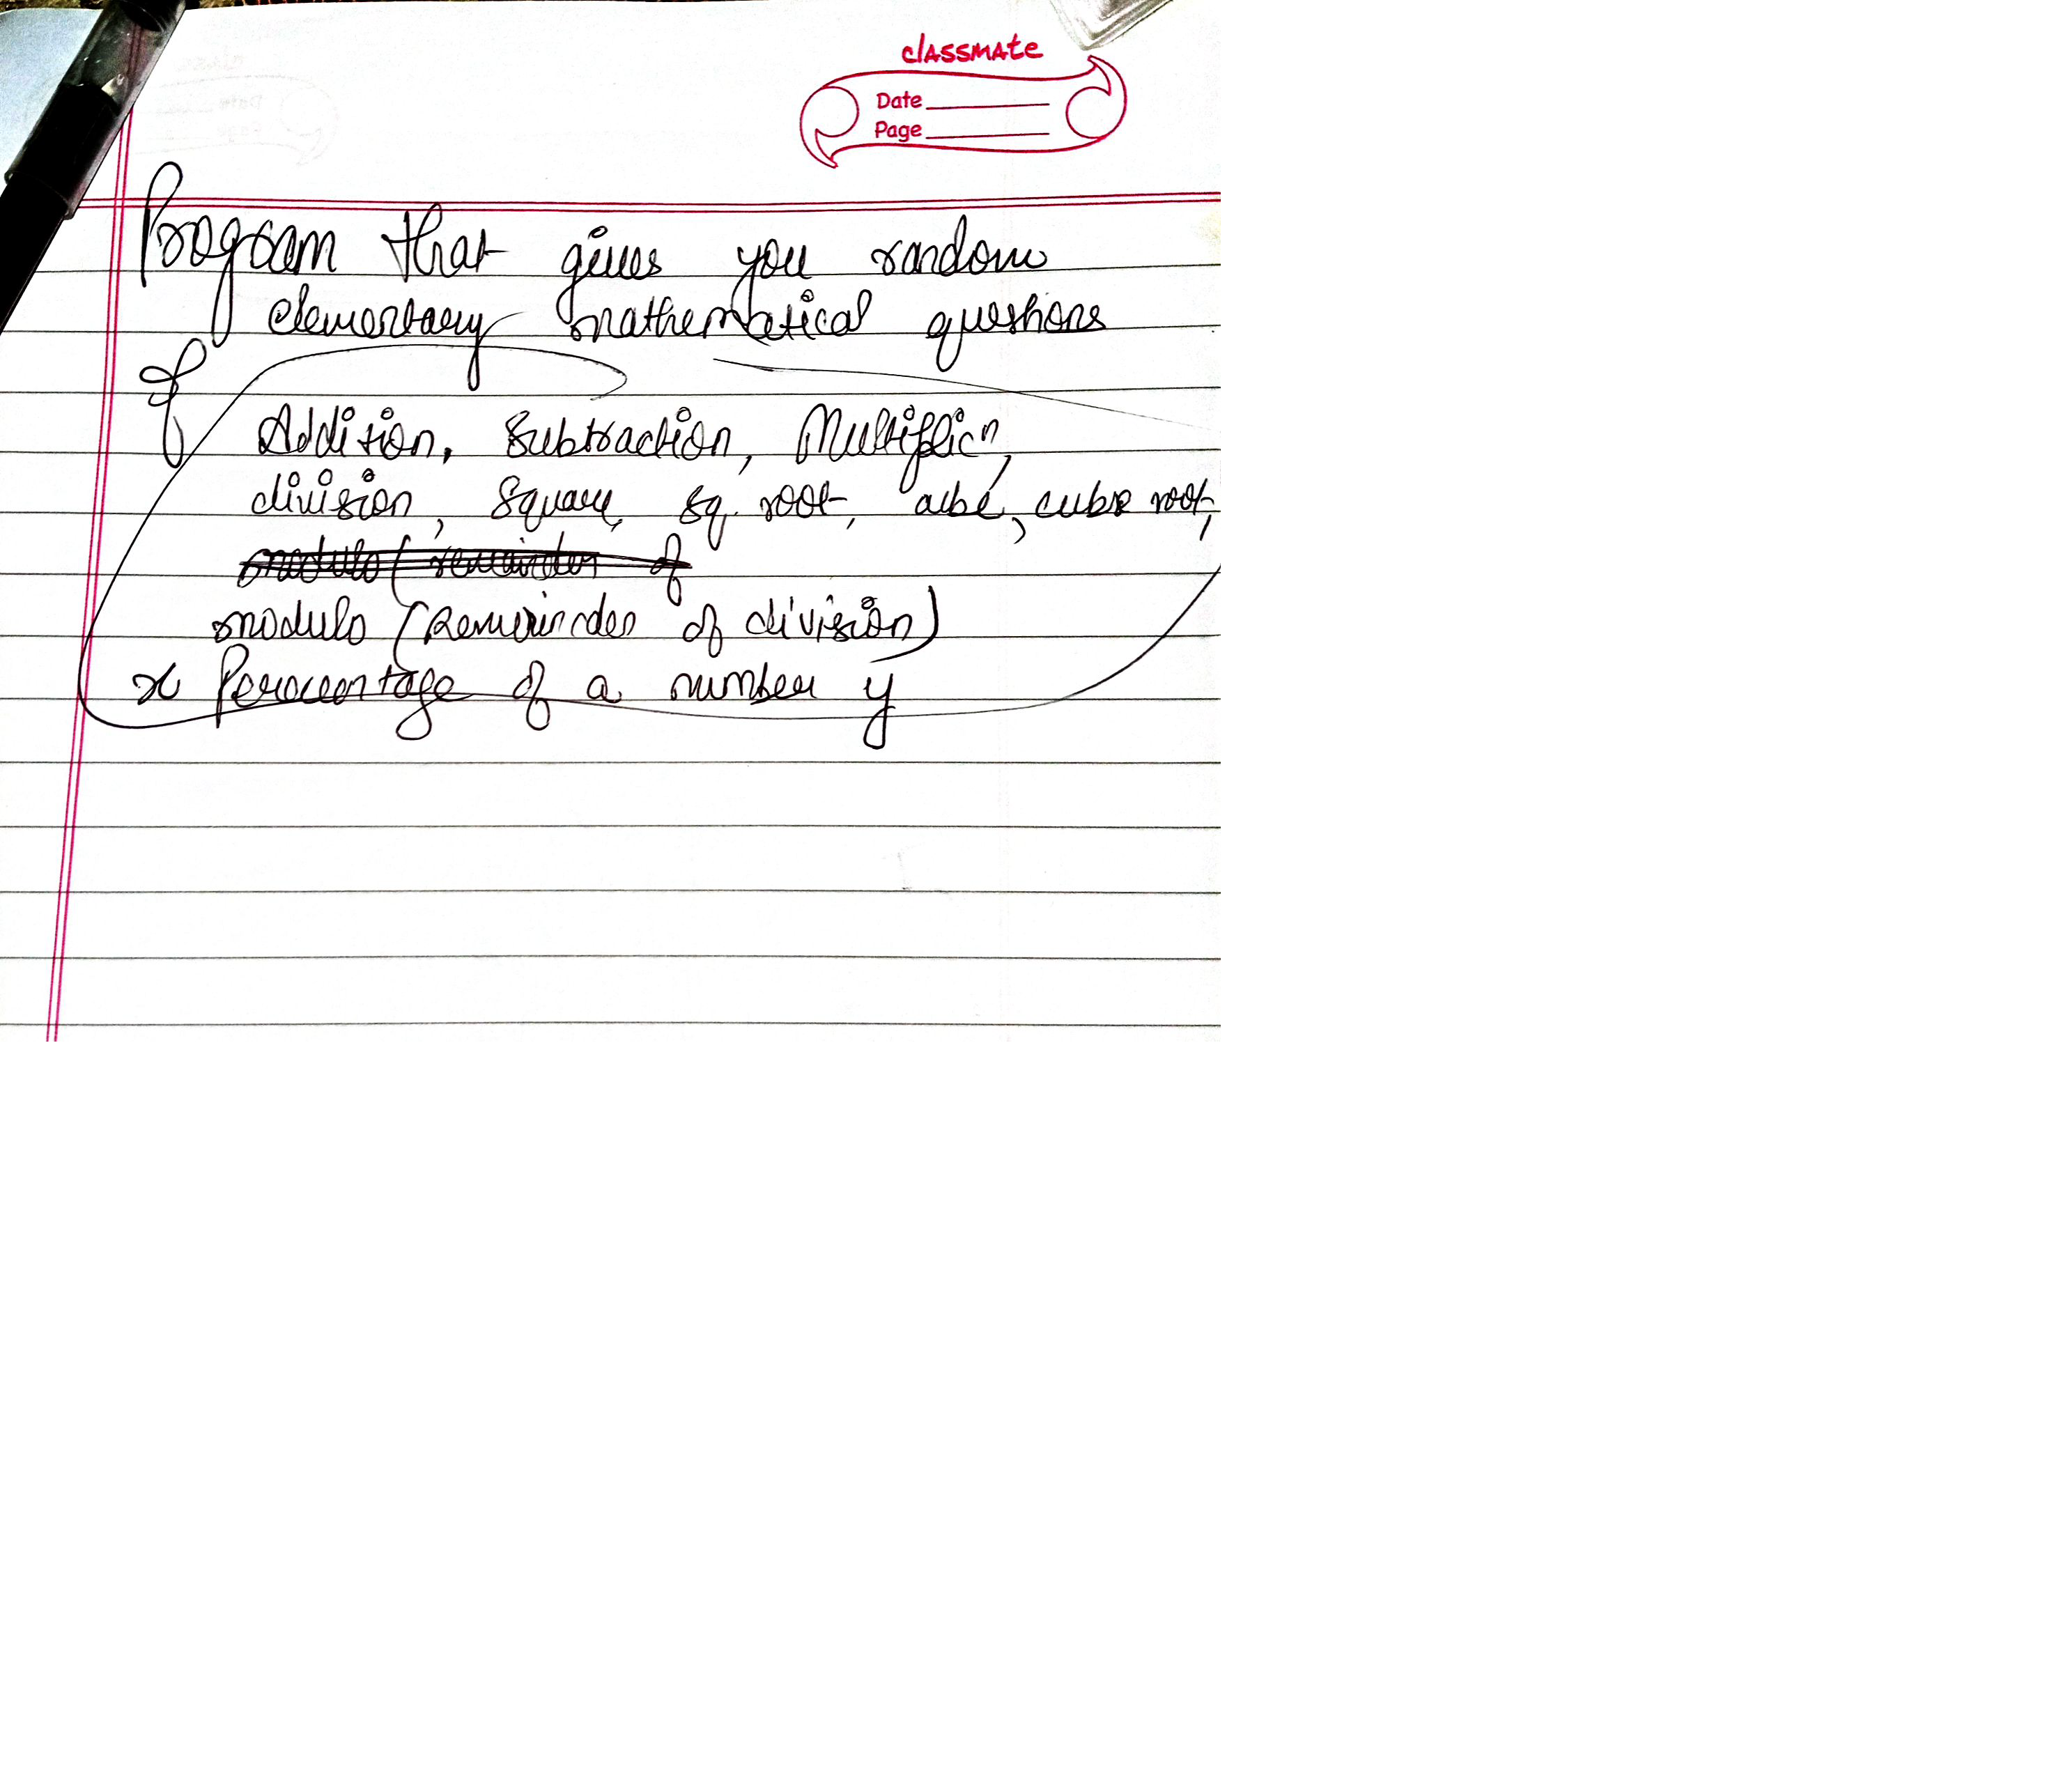 classmate
Date
Page
Program that gives you random
elementary mathematical questions
of
Addition, Subtraction, Multiplicn,
division, square, sq. root, cube, cube root,
modulo (remainder of
modulo (Remainder of division)
x Percentage of a number y